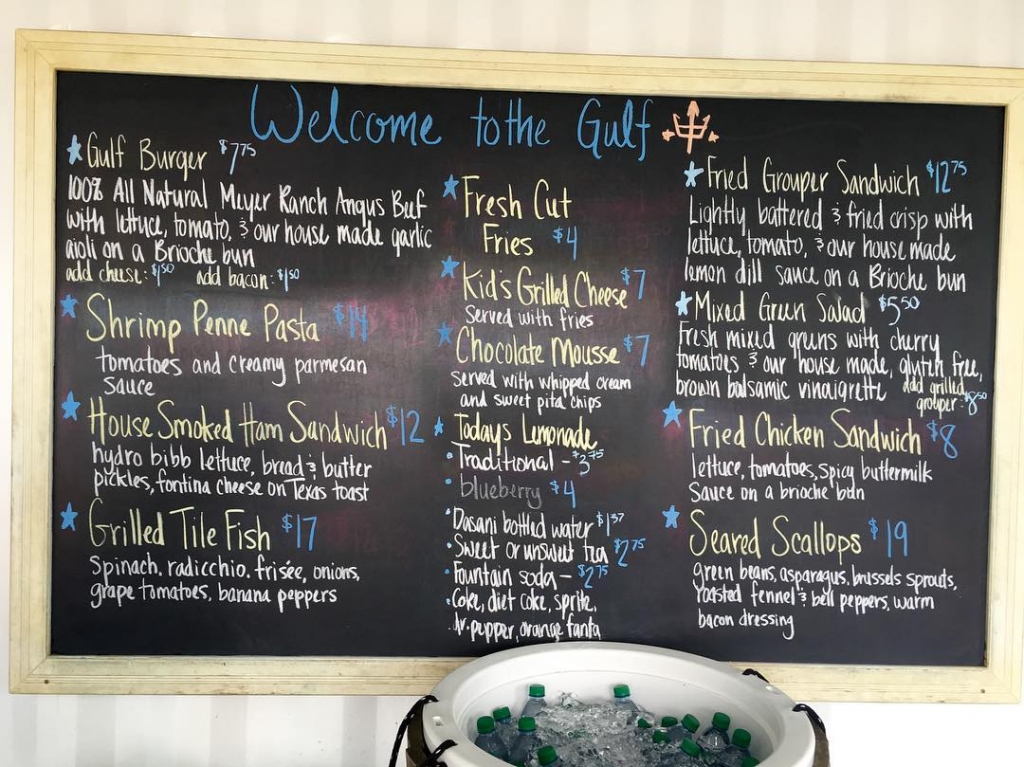 Welcome to the Gulf
Gulf Burger $7.75
100% All Natural Meyer Ranch Angus Beef
with lettuce, tomato, & our house made garlic
aioli on a Brioche bun
add cheese: $1.50 add bacon: $1.50
Shrimp Penne Pasta $14
tomatoes and creamy parmesan
sauce
House Smoked Ham Sandwich $12
hydro bibb lettuce, bread & butter
pickles, fontina cheese on Texas toast
Grilled Tile Fish $17
Spinach, radicchio, frisée, onions,
grape tomatoes, banana peppers
Fresh Cut
Fries $4
Kid's Grilled Cheese $7
Served with fries
Chocolate Mousse $7
Served with whipped cream
and sweet pita chips
Today's Lemonade
Traditional - $3.75
blueberry $4
Dasani bottled water $1.37
Sweet or unsweet tea $2.75
Fountain soda - $2.75
Coke, diet coke, sprite,
dr. pepper, orange fanta
Fried Grouper Sandwich $12.75
Lightly battered & fried crisp with
lettuce, tomato, & our house made
lemon dill sauce on a Brioche bun
Mixed Green Salad $5.50
Fresh mixed greens with cherry
tomatoes & our house made, gluten free,
brown balsamic vinaigrette add grilled
grouper: $8.50
Fried Chicken Sandwich $8
lettuce, tomatoes, spicy buttermilk
Sauce on a brioche bun
Seared Scallops $19
green beans, asparagus, brussels sprouts,
roasted fennel & bell peppers, warm
bacon dressing